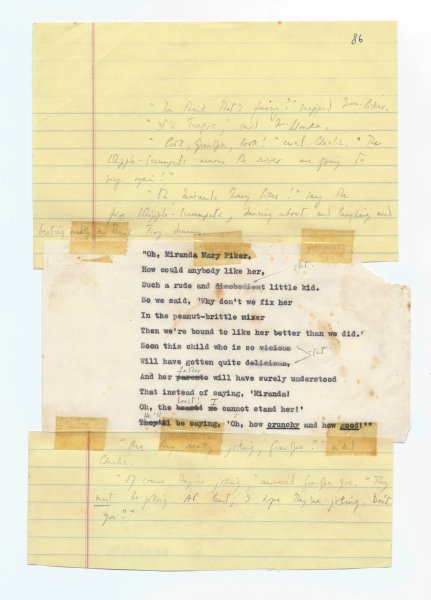 86
"You think that's funny?" snapped Mrs. Piker.
"It's tragic," said Mr Wonka.
"Look, Grandpa, look!" cried Charlie. "The
Whipple-Scrumpets across the river are going to
sing again!"
"Oh, Miranda Mary Piker!" sang the
five Whipple-Scrumpets, dancing about and laughing and
beating madly on their tiny drums.
"Oh, Miranda Mary Piker,
How could anybody like her,
stet.
Such a rude and disobedient little kid.
So we said, 'Why don't we fix her
In the peanut-brittle mixer
Then we're bound to like her better than we did."
Soon this child who is so vicious
stet
Will have gotten quite delicious,
father
And her parents will have surely understood
That instead of saying, 'Miranda!
beast! I
Oh, the beast! we cannot stand her!'
He'll
They'll be saying, 'Oh, how crunchy and how good!!'"
"Are they really joking, Grandpa?" asked
Charlie.
"Of course they're joking" answered Grandpa Joe. "They
must be joking. At least, I hope they're joking. Don't
you?"